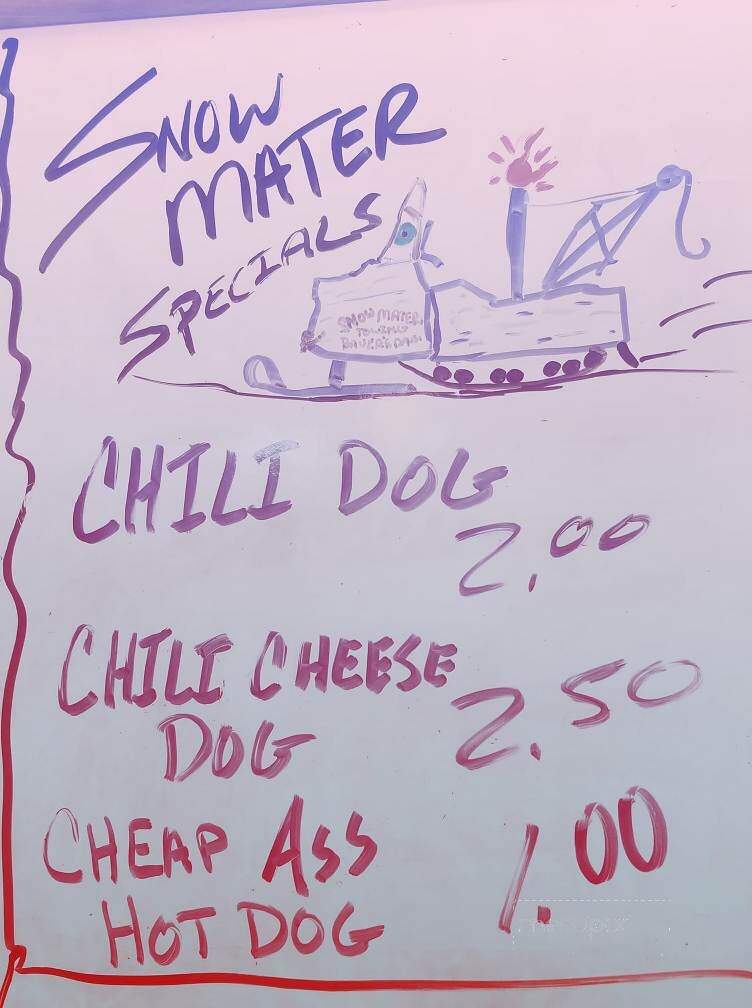 SNOW
MATER
SPECIALS
SNOW MATER
TOWING
CHILI DOG
2.00
CHILI CHEESE
DOG
2.50
CHEAP ASS
HOT DOG
1.00